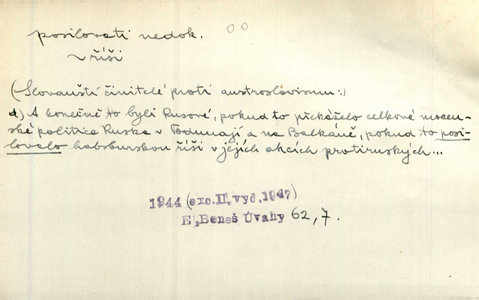 posilovati nedok.
říši
(Slovanští činitelé proti austroslavismu:)
d) A konečně to byli Rusové, pokud to překáželo celkové mocen-
ské politice Ruska v Podunají a na Balkáně, pokud to posi-
lovalo habsburskou říši v jejích akcích protiruských...
1944 (exc. II, vyd. 1947)
E. Beneš Úvahy 62, 7.